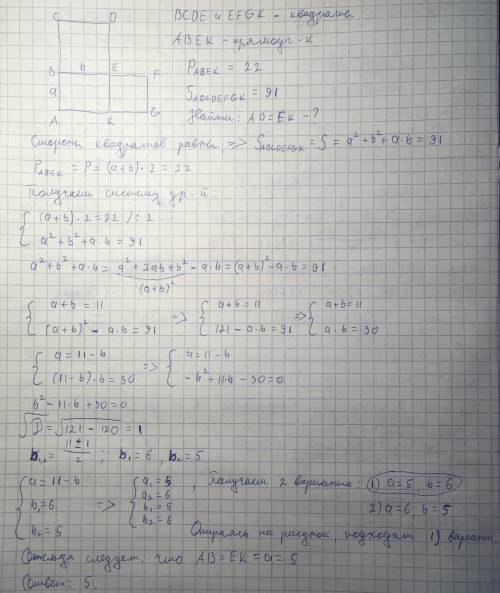 C D
BCDE и EFGK - квадраты
ABEK - прямоуг-к
B b E F
P_ABEK = 22
a
S_ADCDEFGK = 91
A K G
Найти: AB = EK - ?
Стороны квадратов равны => S_ADCDEFGK = S = a² + b² + a·b = 91
P_ABEK = P = (a+b)·2 = 22
Получаем систему ур-й:
{ (a+b)·2 = 22 /:2
a² + b² + a·b = 91
a² + b² + a·b = a² + 2ab + b² - a·b = (a+b)² - a·b = 91
(a+b)²
{ a+b = 11 => { a+b = 11 => { a+b = 11
(a+b)² - a·b = 91 121 - a·b = 91 a·b = 30
{ a = 11 - b => { a = 11 - b
(11-b)·b = 30 -b² + 11·b - 30 = 0
b² - 11·b + 30 = 0
√D = √121 - 120 = 1
b₁,₂ = (11 ± 1)/2 ; b₁ = 6 , b₂ = 5
{ a = 11 - b => { a₁ = 5 , Получаем 2 варианта: 1) a = 5, b = 6
b₁ = 6 a₂ = 6 2) a = 6 b = 5
b₂ = 5 b₁ = 5
b₂ = 6 Опираясь на рисунок, подходит 1) вариант.
Отсюда следует, что AB = EK = a = 5
Ответ: 5.